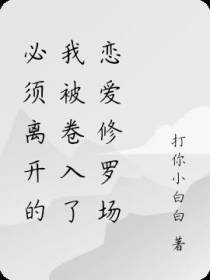 必须离开的
我被卷入了
恋爱修罗场
打你小白白 著